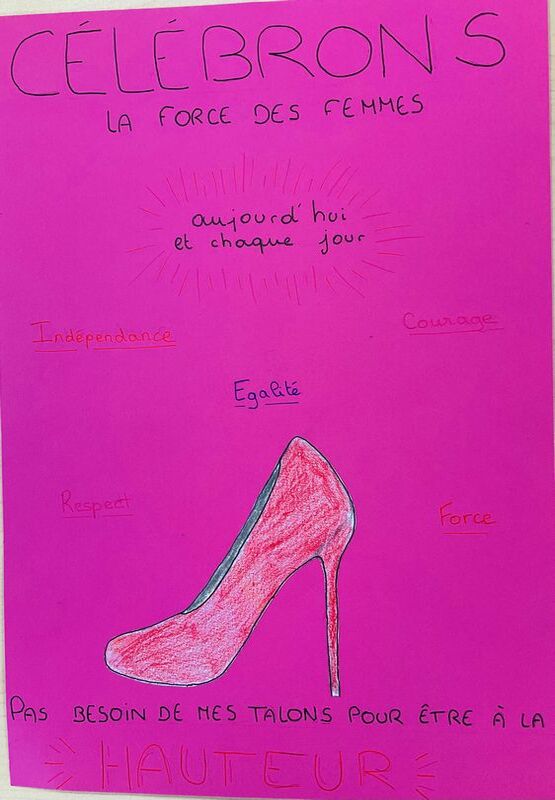 CÉLÉBRONS
LA FORCE DES FEMMES
aujourd'hui
et chaque jour
Indépendance
Courage
Egalité
Respect
Force
PAS BESOIN DE MES TALONS POUR ÊTRE À LA
HAUTEUR